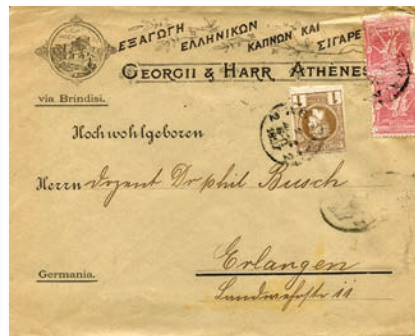 ΕΞΑΓΩΓΗ ΕΛΛΗΝΙΚΩΝ ΚΑΠΝΩΝ ΚΑΙ ΣΙΓΑΡΕ
GEORGII & HARR ATHÈNES
via Brindisi.
1 1
Hochwohlgeboren
Herrn Dozent Dr phil Busch
Erlangen
Germania.
Landwehrstr 11